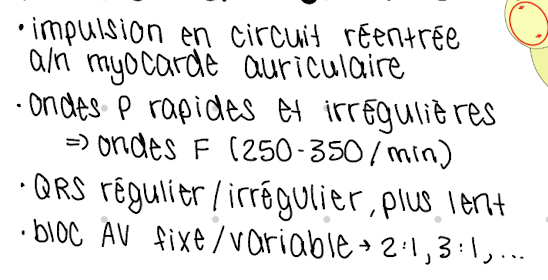 • impulsion en circuit réentrée
a/n myocarde auriculaire
• ondes P rapides et irrégulières
⇒ ondes F (250-350/min)
• QRS régulier/irrégulier, plus lent
• bloc AV fixe/variable → 2:1, 3:1, ...